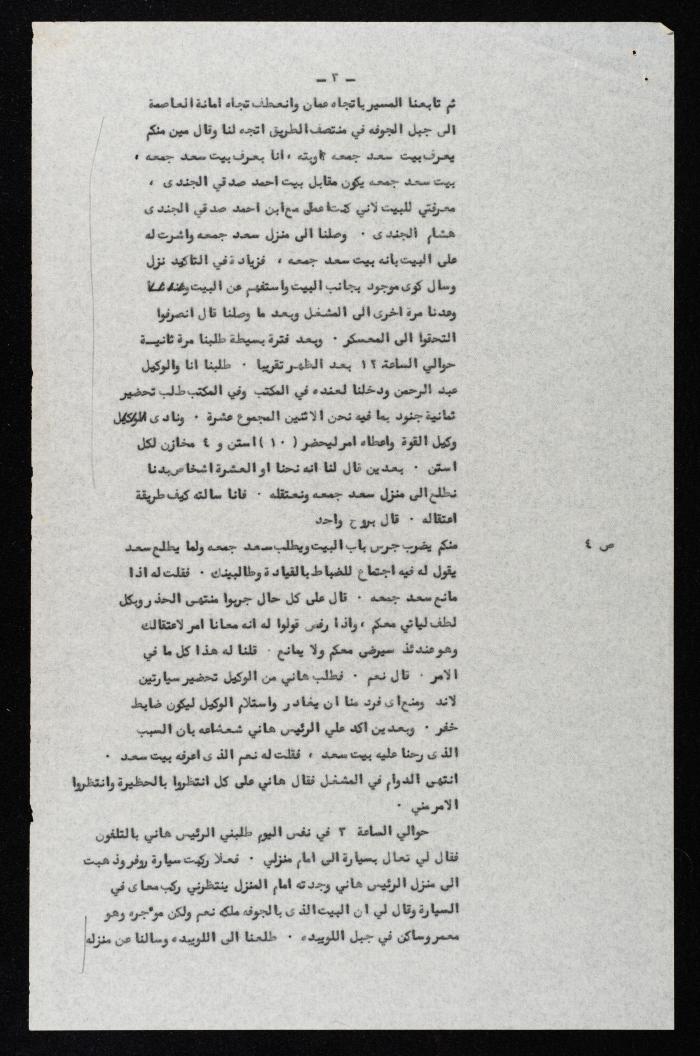 - ٣ -
ثم تابعنا المسير باتجاه عمان وانعطف تجاه امانة العاصمة
الى جبل الجوفه في منتصف الطريق اتجه لنا وقال مين منكم
يعرف بيت سعد جمعه اوبته ، انا بعرف بيت سعد جمعه ،
بيت سعد جمعه يكون مقابل بيت احمد صدقي الجندى ،
معرفتي للبيت لاني كنت اعمل مع ابن احمد صدقي الجندى
هشام الجندى . وصلنا الى منزل سعد جمعه واشرت له
على البيت بانه بيت سعد جمعه ، فزيادة في التاكيد نزل
وسال كوى موجود بجانب البيت واستفهم عن البيت
وعدنا مرة اخرى الى المشغل وبعد ما وصلنا قال انصرفوا
التحقوا الى المعسكر . وبعد فترة بسيطة طلبنا مرة ثانيـة
حوالي الساعة ١٢ بعد الظهر تقريبا . طلبنا انا والوكيل
عبد الرحمن ودخلنا لعنده في المكتب وفي المكتب طلب تحضير
ثمانية جنود بما فيه نحن الاثنين المجموع عشرة . ونادى
وكيل القوة واعطاه امر ليحضر ( ١٠ ) استن و ٤ مخازن لكل
استن . بعدين قال لنا انه نحنا او العشرة اشخاص بدنا
نطلع الى منزل سعد جمعه ونعتقله . فانا سالته كيف طريقة
اعتقاله . قال بروح واحد
ص ٤
منكم يضرب جرس باب البيت ويطلب سعد جمعه ولما يطلع سعد
يقول له فيه اجتماع للضباط بالقيادة وطالبينك . فقلت له اذا
مانع سعد جمعه . قال على كل حال جربوا منتهى الحذر وبكل
لطف لياتي معكم ، واذا رفض قولوا له انه معانا امر لاعتقالك
وهو عندئذ سيرضى معكم ولا يمانع . قلنا له هذا كل ما في
الامر . قال نعم . فطلب هاني من الوكيل تحضير سيارتين
لاند ومنع اى فرد منا ان يغادر واستلام الوكيل ليكون ضابط
خفر . وبعدين اكد علي الرئيس هاني شعشاعه بان السبب
الذى رحنا عليه بيت سعد ، فقلت له نعم الذى اعرفه بيت سعد .
انتهى الدوام في المشغل فقال هاني على كل انتظروا بالحظيرة وانتظروا
الامر مني .
حوالي الساعة ٣ في نفس اليوم طلبني الرئيس هاني بالتلفون
فقال لي تعال بسيارة الى امام منزلي . فعلا ركبت سيارة روفر وذهبت
الى منزل الرئيس هاني وجدته امام المنزل ينتظرني ركب معاى في
السيارة وقال لي ان البيت الذى بالجوفه ملكه نعم ولكن موٴجره وهو
معمر وساكن في جبل اللويبده . طلعنا الى اللويبده وسالنا عن منزله